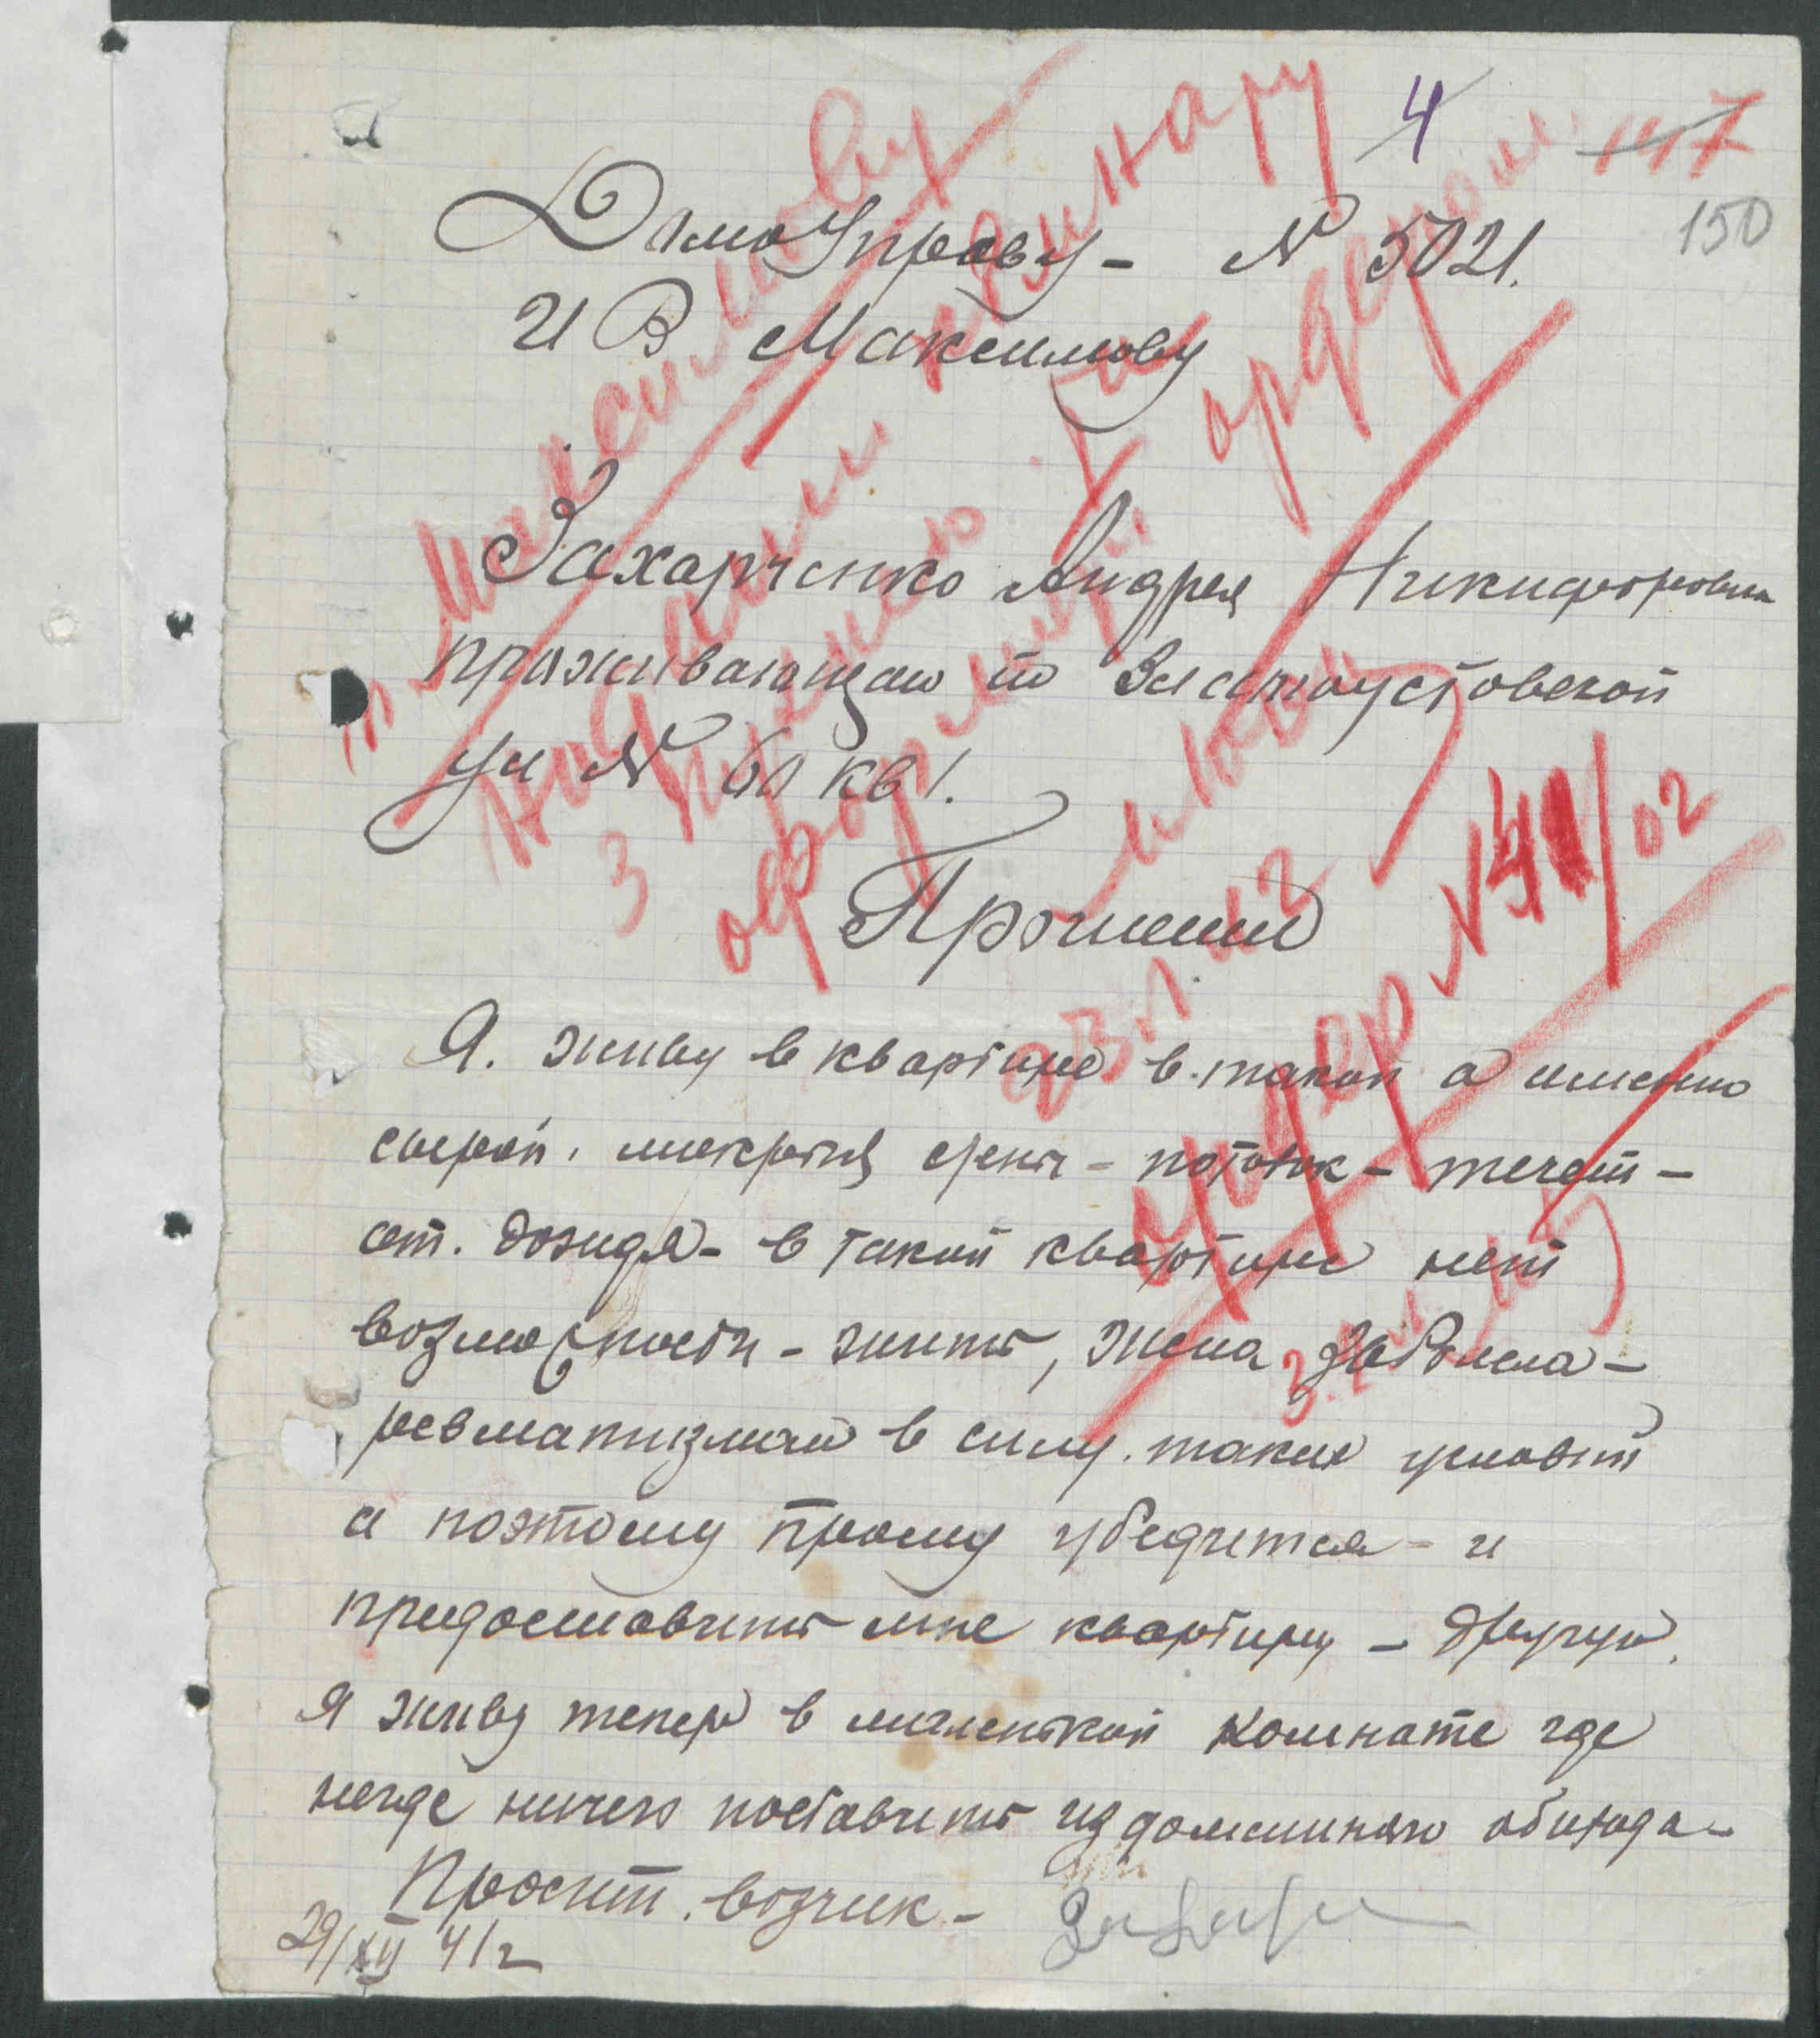 4
117
150
ДомоУправу - N 5021.
И В Максимову
Захарченко Андрея Никифоровича
проживающаго по Златоустовской
ул N 60 кв 1.
Прошение
Я. живу в квартире в. такой а именно
сырой, мокрыя стены - потолок - течет -
от. дождя - в такой квартире нет
возможности - жить, жена заболела -
ревматизмом в силу. таких условий
а поэтому прошу убедится - и
предоставить мне квартиру - другую.
Я живу тепер в маленькой комнате где
негде ничего поставить из домашнаго обихода -
Просит. возчик -
29/XII 41 г
т. Максимову
3
оформит ордером
23.1 42
ордер N 41/02